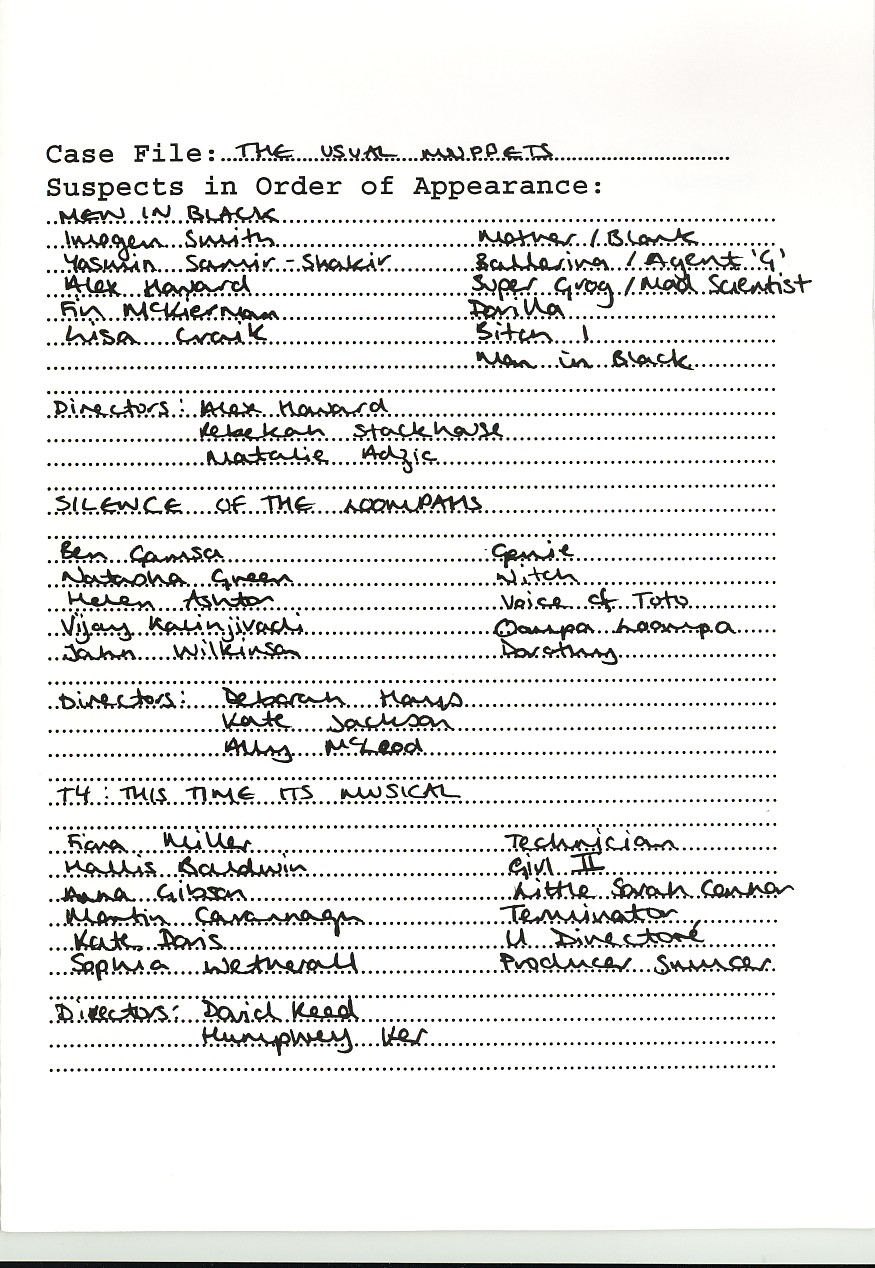 Case File: THE USUAL MUPPETS
Suspects in Order of Appearance:
MEN IN BLACK
Imogen Smith Mother / Blank
Yasmin Samir-Shakir Ballerina / Agent 'G'
Alex Howard Super Grog / Mad Scientist
Fin McKiernan Dorilla
Lisa Craik Bitch 1
Man in Black
Directors: Alex Howard
Rebekah Stackhouse
Natalie Adzic
SILENCE OF THE LOOMPAHS
Ben Genie
Natasha Green Witch
Helen Ashton Voice of Toto
Vijay Oompa Loompa
John Wilkinson Dorothy
Directors: Deborah Hays
Kate Jackson
Ally McLeod
T4: THIS TIME ITS MUSICAL
Fiona Miller Technician
Hallis Baldwin Girl II
Anna Gibson Little Sarah Connor
Martin Cavannagh Terminator
Kate Il Directoré
Sophia Wetherall Producer
Directors: David Reed
Humphrey Ker